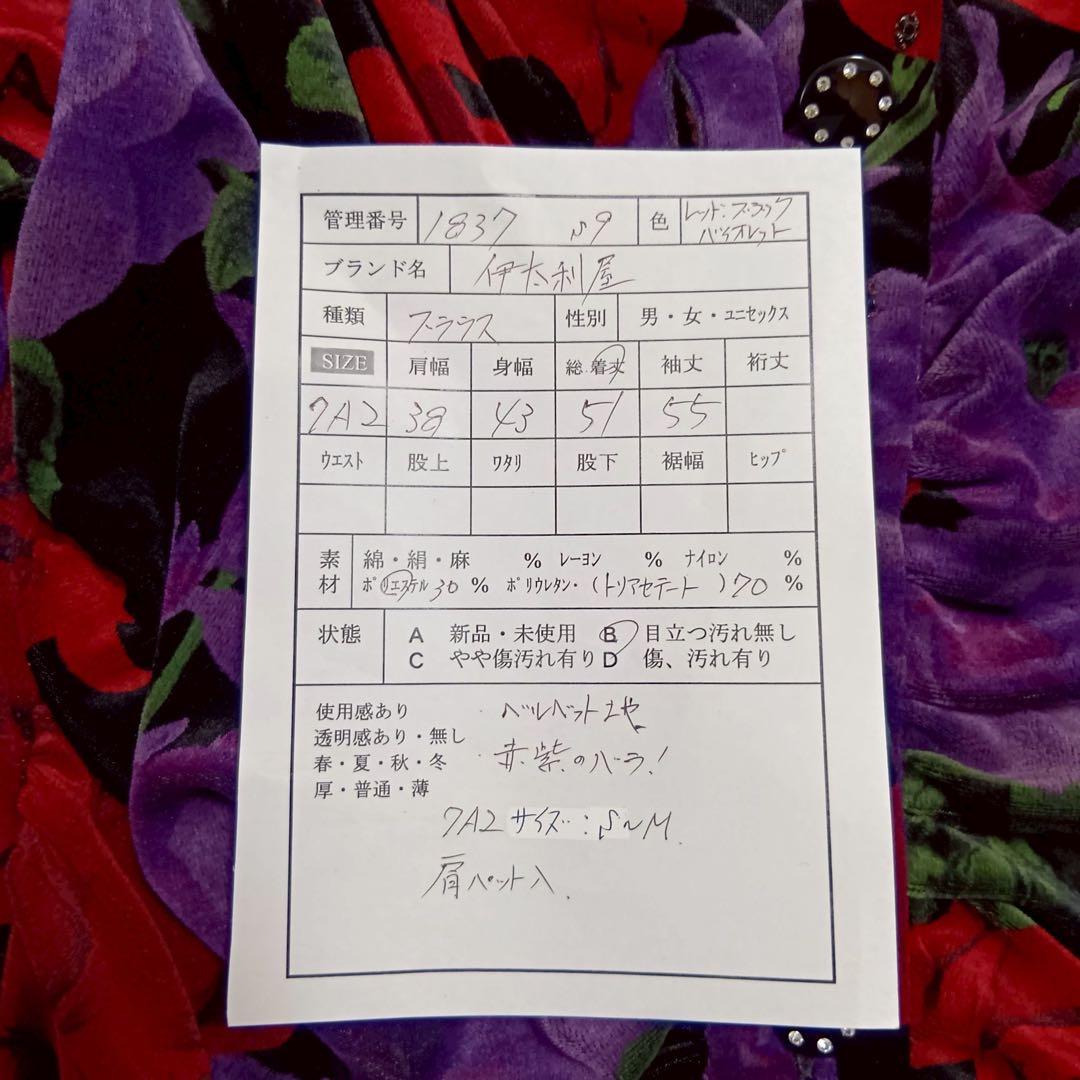 管理番号 1837 S9 色 レッド:ブラック
バイオレット
ブランド名 伊太利屋
種類 ブラウス 性別 男・女・ユニセックス
SIZE 肩幅 身幅 総.着丈 袖丈 裄丈
7A2 38 43 51 55
ウエスト 股上 ワタリ 股下 裾幅 ヒップ
素材 綿・絹・麻 % レーヨン % ナイロン %
ポリエステル 30 % ポリウレタン・(トリアセテート)70 %
状態 A 新品・未使用 B 目立つ汚れ無し
C やや傷汚れ有り D 傷、汚れ有り
使用感あり ベルベット
透明感あり・無し
春・夏・秋・冬 赤紫のバラ!
厚・普通・薄
7A2 サイズ:S~M.
肩パット入.